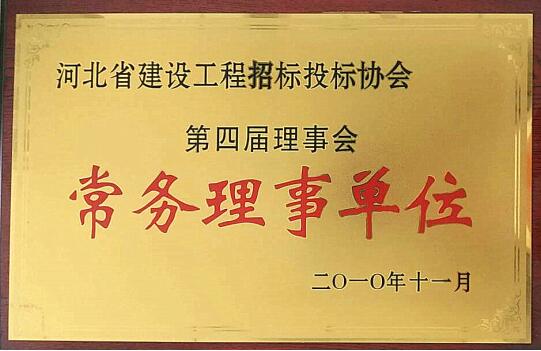 河北省建设工程招标投标协会
第四届理事会
常务理事单位
二〇一〇年十一月